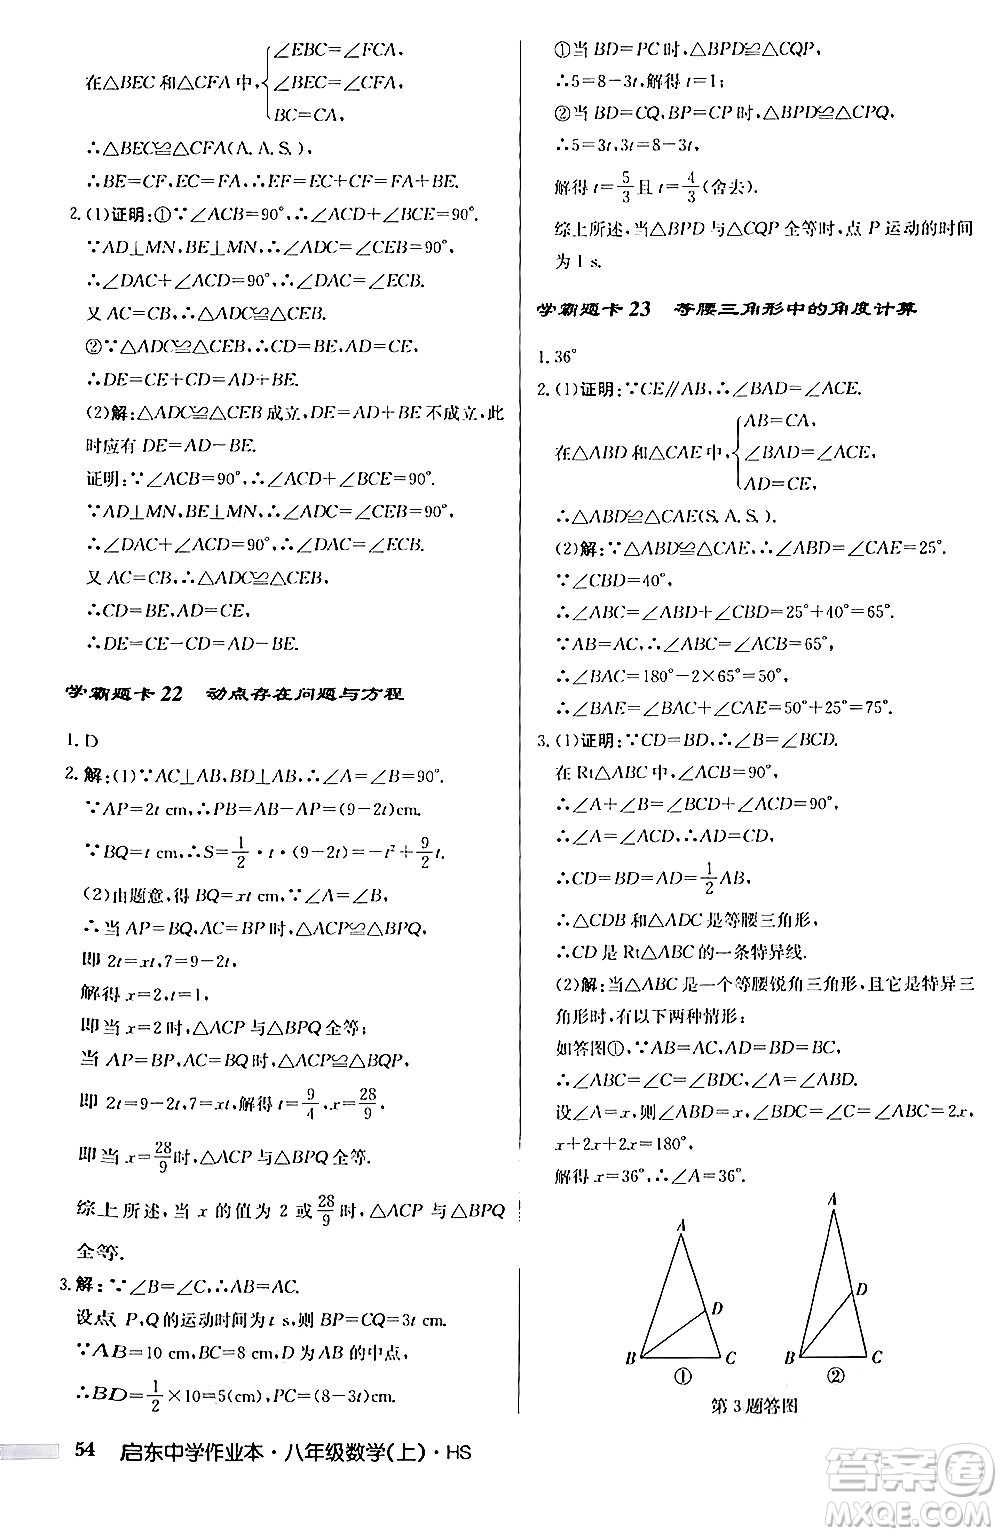 ∠EBC=∠FCA,
在△BEC 和△CFA 中, ∠BEC=∠CFA,
BC=CA,
∴△BEC≌△CFA(A.A.S.).
∴BE=CF,EC=FA,∴EF=EC+CF=FA+BE.
2. (1)证明:①∵∠ACB=90°,∴∠ACD+∠BCE=90°.
∵AD⊥MN,BE⊥MN,∴∠ADC=∠CEB=90°,
∴∠DAC+∠ACD=90°,∴∠DAC=∠ECB.
又 AC=CB,∴△ADC≌△CEB.
②∵△ADC≌△CEB,∴CD=BE,AD=CE.
∴DE=CE+CD=AD+BE.
(2)解:△ADC≌△CEB 成立,DE=AD+BE 不成立,此
时应有 DE=AD-BE.
证明:∵∠ACB=90°,∴∠ACD+∠ECB=90°.
∵AD⊥MN,BE⊥MN,∴∠ADC=∠CEB=90°,
∴∠DAC+∠ACD=90°,∴∠DAC=∠ECB.
又 AC=CB,∴△ADC≌△CEB.
∴CD=BE,AD=CE,
∴DE=CE-CD=AD-BE.
学霸题卡 22 动点存在问题与方程
1. D
2. 解:(1)∵AC⊥AB,BD⊥AB,∴∠A=∠B=90°.
∵AP=2t cm,∴PB=AB-AP=(9-2t)cm.
∵BQ=t cm,∴S=1/2·t·(9-2t)=-t²+9/2 t.
(2)由题意,得 BQ=xt cm,∵∠A=∠B,
∴当 AP=BQ,AC=BP 时,△ACP≌△BPQ,
即 2t=xt,7=9-2t,
解得 x=2,t=1,
即当 x=2 时,△ACP 与△BPQ 全等;
当 AP=BP,AC=BQ 时,△ACP≌△BQP,
即 2t=9-2t,7=xt,解得 t=9/4,x=28/9,
即当 x=28/9时,△ACP 与△BPQ 全等.
综上所述,当 x 的值为 2 或28/9时,△ACP 与△BPQ
全等.
3. 解:∵∠B=∠C,∴AB=AC.
设点 P,Q 的运动时间为 t s,则 BP=CQ=3t cm.
∵AB=10 cm,BC=8 cm,D 为 AB 的中点,
∴BD=1/2×10=5(cm),PC=(8-3t)cm.
①当 BD=PC 时,△BPD≌△CQP,
∴5=8-3t,解得 t=1;
②当 BD=CQ,BP=CP 时,△BPD≌△CPQ,
∴5=3t,3t=8-3t,
解得 t=5/3且 t=4/3(舍去).
综上所述,当△BPD 与△CQP 全等时,点 P 运动的时间
为 1 s.
学霸题卡 23 等腰三角形中的角度计算
1. 36°
2. (1)证明:∵CE∥AB,∴∠BAD=∠ACE.
AB=CA,
在△ABD 和△CAE 中, ∠BAD=∠ACE,
AD=CE,
∴△ABD≌△CAE(S.A.S.).
(2)解:∵△ABD≌△CAE,∴∠ABD=∠CAE=25°.
∵∠CBD=40°,
∴∠ABC=∠ABD+∠CBD=25°+40°=65°.
∵AB=AC,∴∠ABC=∠ACB=65°,
∴∠BAC=180°-2×65°=50°,
∴∠BAE=∠BAC+∠CAE=50°+25°=75°.
3. (1)证明:∵CD=BD,∴∠B=∠BCD.
在 Rt△ABC 中,∠ACB=90°,
∴∠A+∠B=∠BCD+∠ACD=90°,
∴∠A=∠ACD,∴AD=CD,
∴CD=BD=AD=1/2AB,
∴△CDB 和△ADC 是等腰三角形,
∴CD 是 Rt△ABC 的一条特异线.
(2)解:当△ABC 是一个等腰锐角三角形,且它是特异三
角形时,有以下两种情形:
如答图①,∵AB=AC,AD=BD=BC,
∴∠ABC=∠C=∠BDC,∠A=∠ABD,
设∠A=x,则∠ABD=x,∠BDC=∠C=∠ABC=2x,
x+2x+2x=180°,
解得 x=36°,∴∠A=36°.
A
A
D
D
B
C
B
C
①
②
第 3 题答图
54 启东中学作业本·八年级数学(上)·HS
答案圈
MXQE.COM